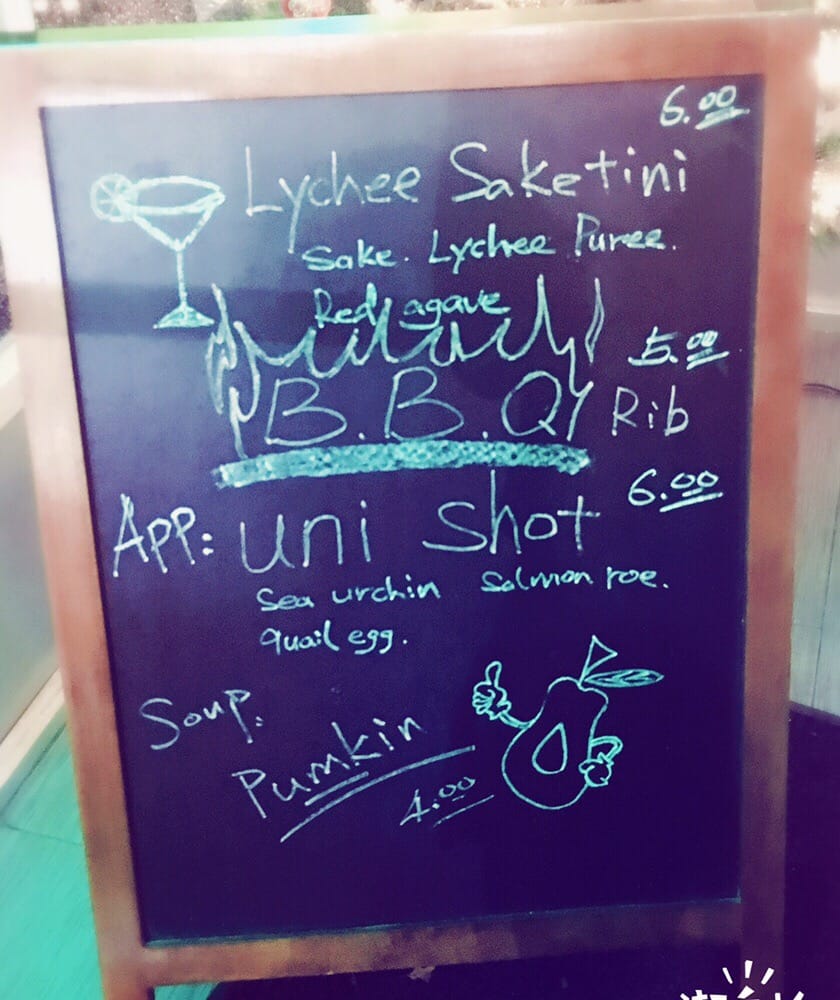 6.00
Lychee Saketini
Sake. Lychee Puree.
Red agave
5.00
B.B.Q Rib
6.00
App: uni shot
Sea urchin Salmon roe.
quail egg.
Soup.
Pumkin
4.00